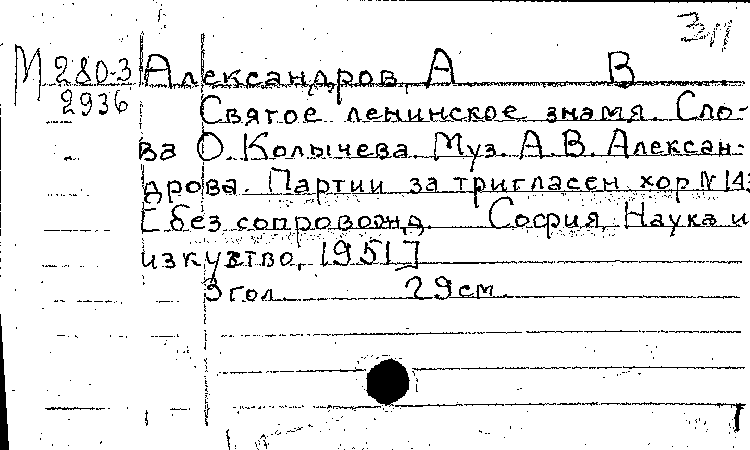 М 280-3 Александров, А В
2936 Святое ленинское знамя. Сло-
ва О. Колычева. Муз. А. В. Алексан-
дрова. Партии за тригласен хор N 143
[без сопровожд. София, Наука и
изкуство, 1951]
3 гол. 29 см.